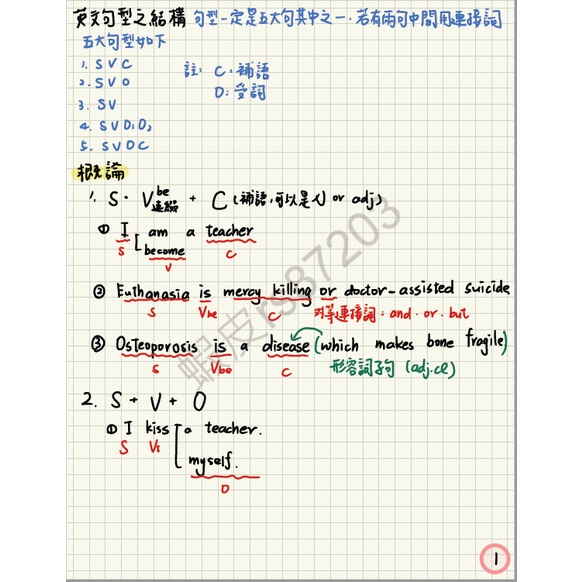 英文句型之結構 句型一定是五大句其中之一．若有兩句中間用連接詞
五大句型如下
1. S V C
2. S V O
3. S V
4. S V O₁O₂
5. S V O C
註: C:補語
O:受詞
概論
1. S．V be 連綴 + C (補語,可以是N or adj)
① I am a teacher
become
S V C
② Euthanasia is mercy killing or doctor-assisted suicide
S Vbe C 對等連接詞: and．or．but
③ Osteoporosis is a disease (which makes bone fragile)
S Vbe C 形容詞子句 (adj.cl)
2. S + V + O
① I kiss a teacher.
S Vt
myself.
O
蝦皮rs87203
1